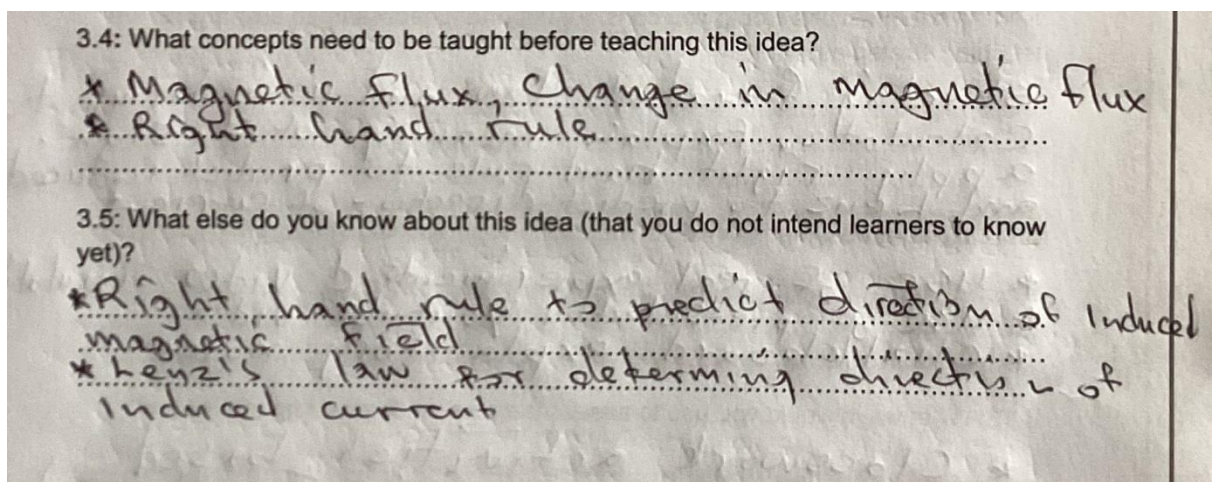 3.4: What concepts need to be taught before teaching this idea?
* Magnetic flux, change in magnetic flux
* Right hand rule
3.5: What else do you know about this idea (that you do not intend learners to know
yet)?
*Right hand rule to predict direction of Induced
magnetic field
* Lenz's law for determing direction of
Induced current